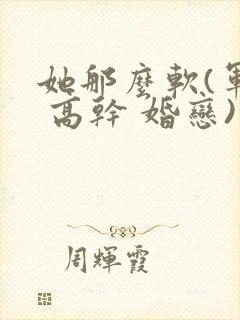 她那麼軟(軍
高幹 婚戀)
周輝霞